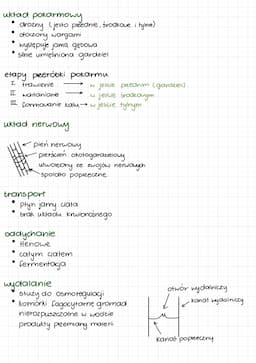 układ pokarmowy
• drożny (jelito przednie, środkowe i tylne)
• otoczony wargami
• występuje jama gębowa
• silnie umięśniona gardziel
etapy przeróbki pokarmu
I trawienie → w jelicie przednim (gardzieli)
II wchłanianie → w jelicie środkowym
III formowanie kału → w jelicie tylnym
układ nerwowy
pień nerwowy
pierścień okołogardzielowy
utworzony ze zwojów nerwowych
spoidło poprzeczne
transport
• płyn jamy ciała
• brak układu krwionośnego
oddychanie
• tlenowe
• całym ciałem
• fermentacja
wydalanie
• służy do osmoregulacji
• komórki fagocytarne gromadzą
nierozpuszczalne w wodzie
produkty przemiany materii
otwór wydalniczy
kanał wydalniczy
kanał poprzeczny